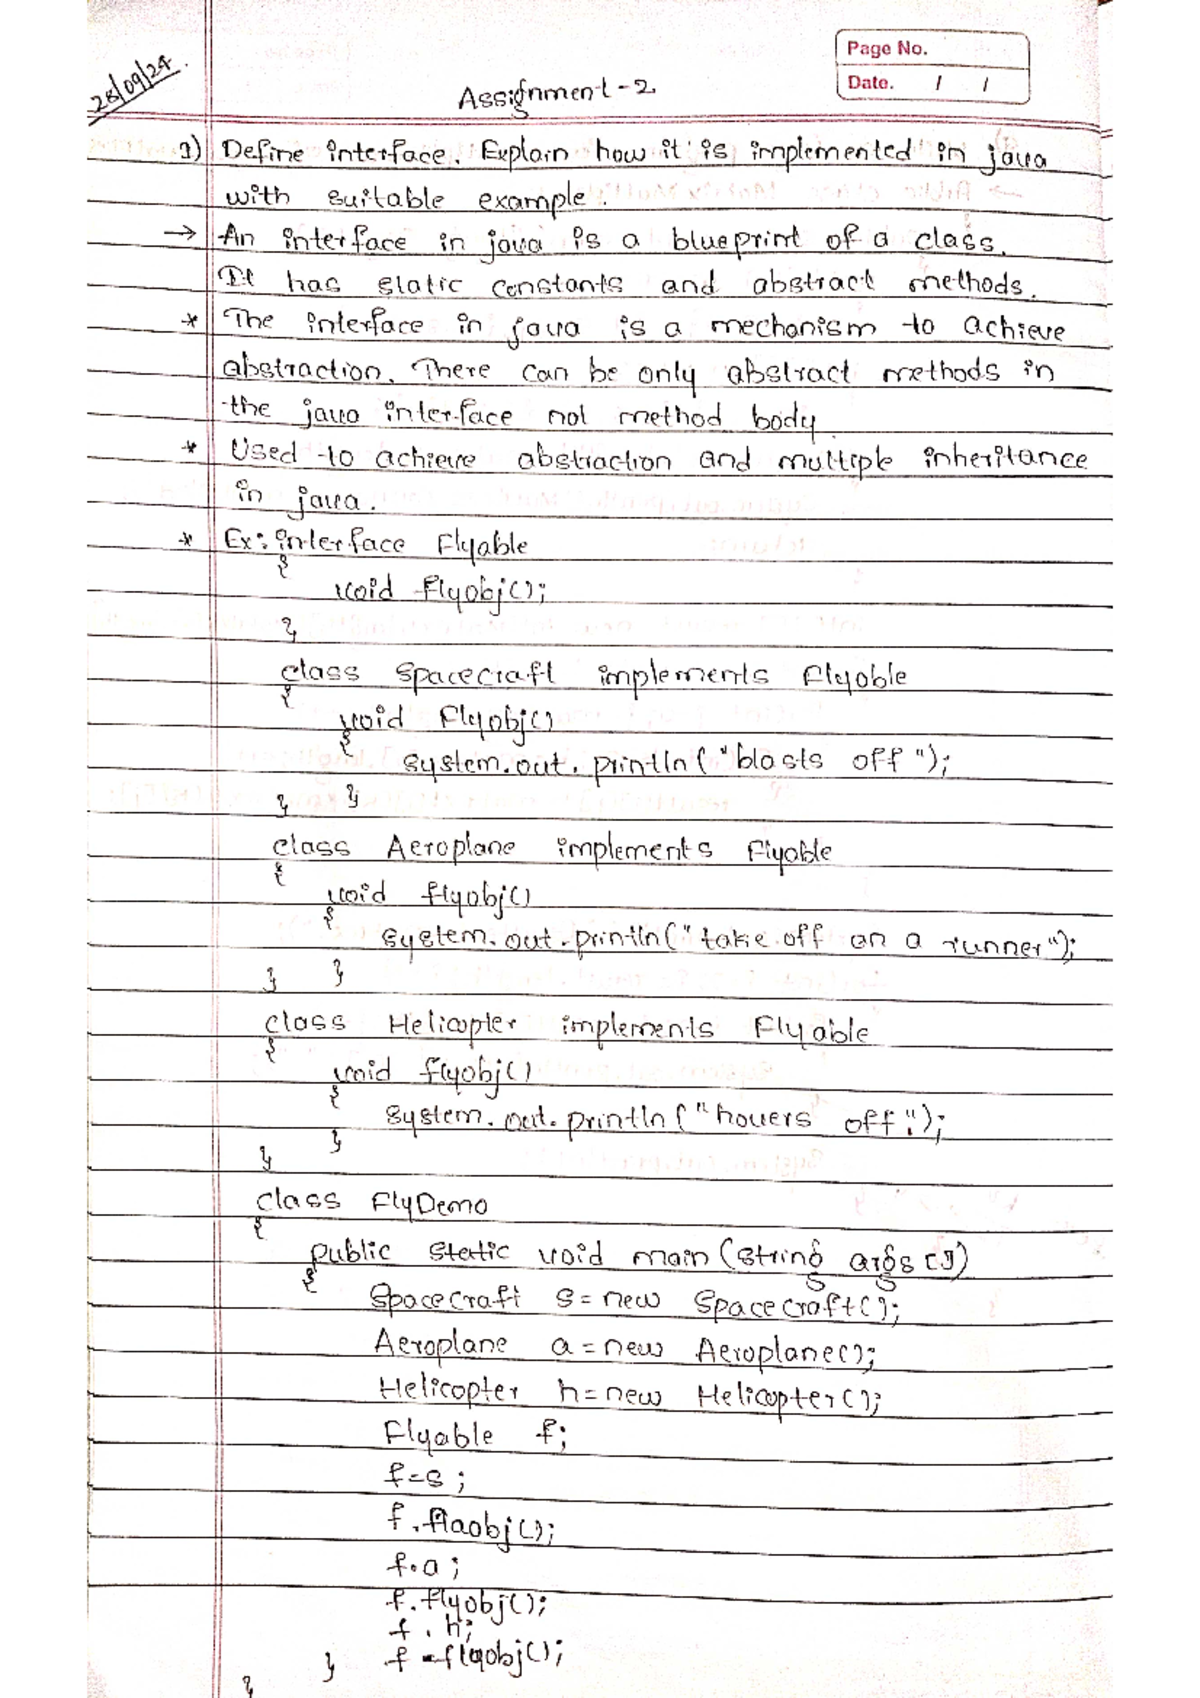 28/09/24
Page No.
Date. / /
Assignment - 2
1) Define interface. Explain how it is implemented in java
with suitable example.
→ An interface in java is a blueprint of a class.
It has static constants and abstract methods.
* The interface in java is a mechanism to achieve
abstraction. There can be only abstract methods in
the java interface not method body.
* Used to achieve abstraction and multiple inheritance
in java.
* Ex: interface Flyable
{
void flyobj();
}
class spacecraft implements Flyable
{
void flyobj()
{
system.out.println("blasts off");
} }
class Aeroplane implements Flyable
{
void flyobj()
{
system.out.println("take off on a runner");
} }
class Helicopter implements Flyable
{
void flyobj()
{
system.out.println("hovers off.");
}
}
class FlyDemo
{
public static void main(string args[])
{
Spacecraft s = new Spacecraft();
Aeroplane a = new Aeroplane();
Helicopter h = new Helicopter();
Flyable f;
f = s;
f.flaobj();
f.a;
f.flyobj();
f.h;
} f = flyobj();
}